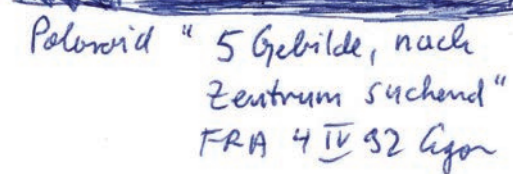 Polaroid " 5 Gebilde, nach
Zentrum suchend "
FRA 4 IV 92 Egon